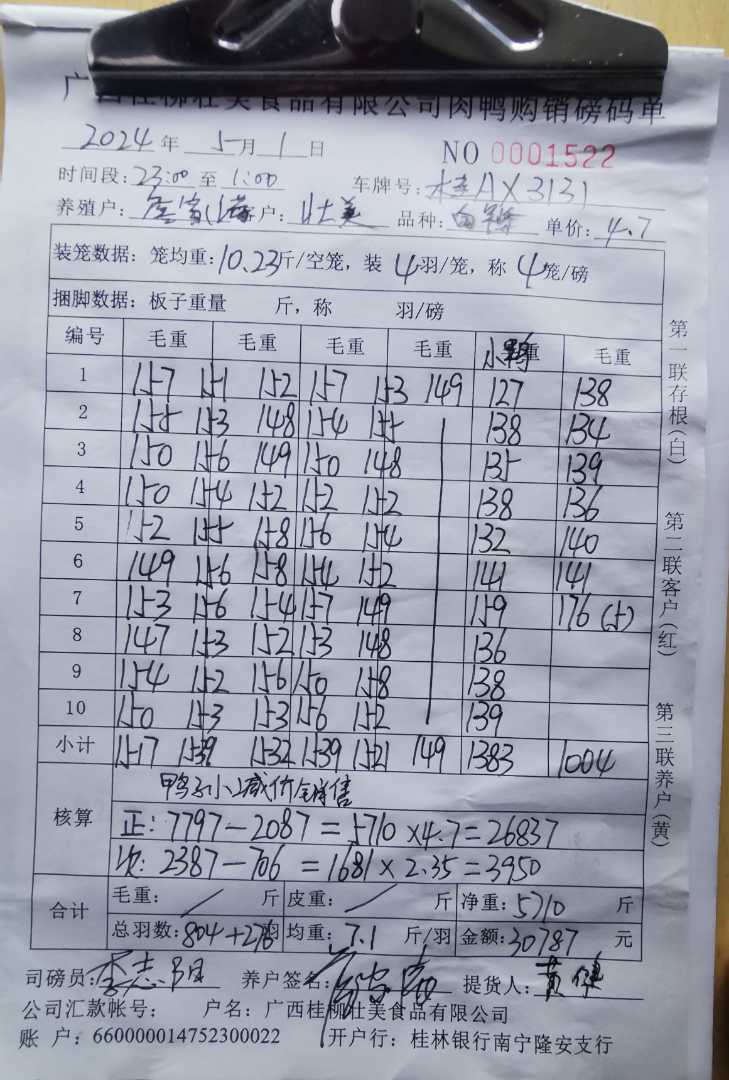 广西桂柳壮美食品有限公司肉鸭购销磅码单
2024年 5月 1日 NO 0001522
时间段:23:00 至 1:00 车牌号:桂AX3131
养殖户: 客户: 壮美 品种: 单价: 4.7
装笼数据: 笼均重:10.23斤/空笼,装 4羽/笼,称 4笼/磅
捆脚数据: 板子重量 斤,称 羽/磅
编号 毛重 毛重 毛重 毛重 小鸭 毛重
1 157 151 152 157 153 149 127 138
2 155 153 148 154 155 138 134
3 150 156 149 150 148 135 139
4 150 154 152 152 152 138 136
5 152 155 158 156 154 132 140
6 149 156 158 154 152 141 141
7 153 156 154 157 149 159 176
8 147 153 152 153 148 136
9 154 152 156 150 158 138
10 150 153 153 156 152 139
小计 1517 1539 1532 1539 1521 149 1383 1004
核算
鸭子小减价销售
正: 7797-2087=5710×4.7=26837
次: 2387-706=1681×2.35=3950
合计
毛重: / 斤 皮重: / 斤 净重: 5710 斤
总羽数: 804+276羽 均重: 7.1 斤/羽 金额: 30787 元
司磅员: 李志阳 养户签名: 提货人: 黄
公司汇款帐号: 户名:广西桂柳壮美食品有限公司
账 户:660000014752300022 开户行:桂林银行南宁隆安支行
第一联存根(白)
第二联客户(红)
第三联养户(黄)